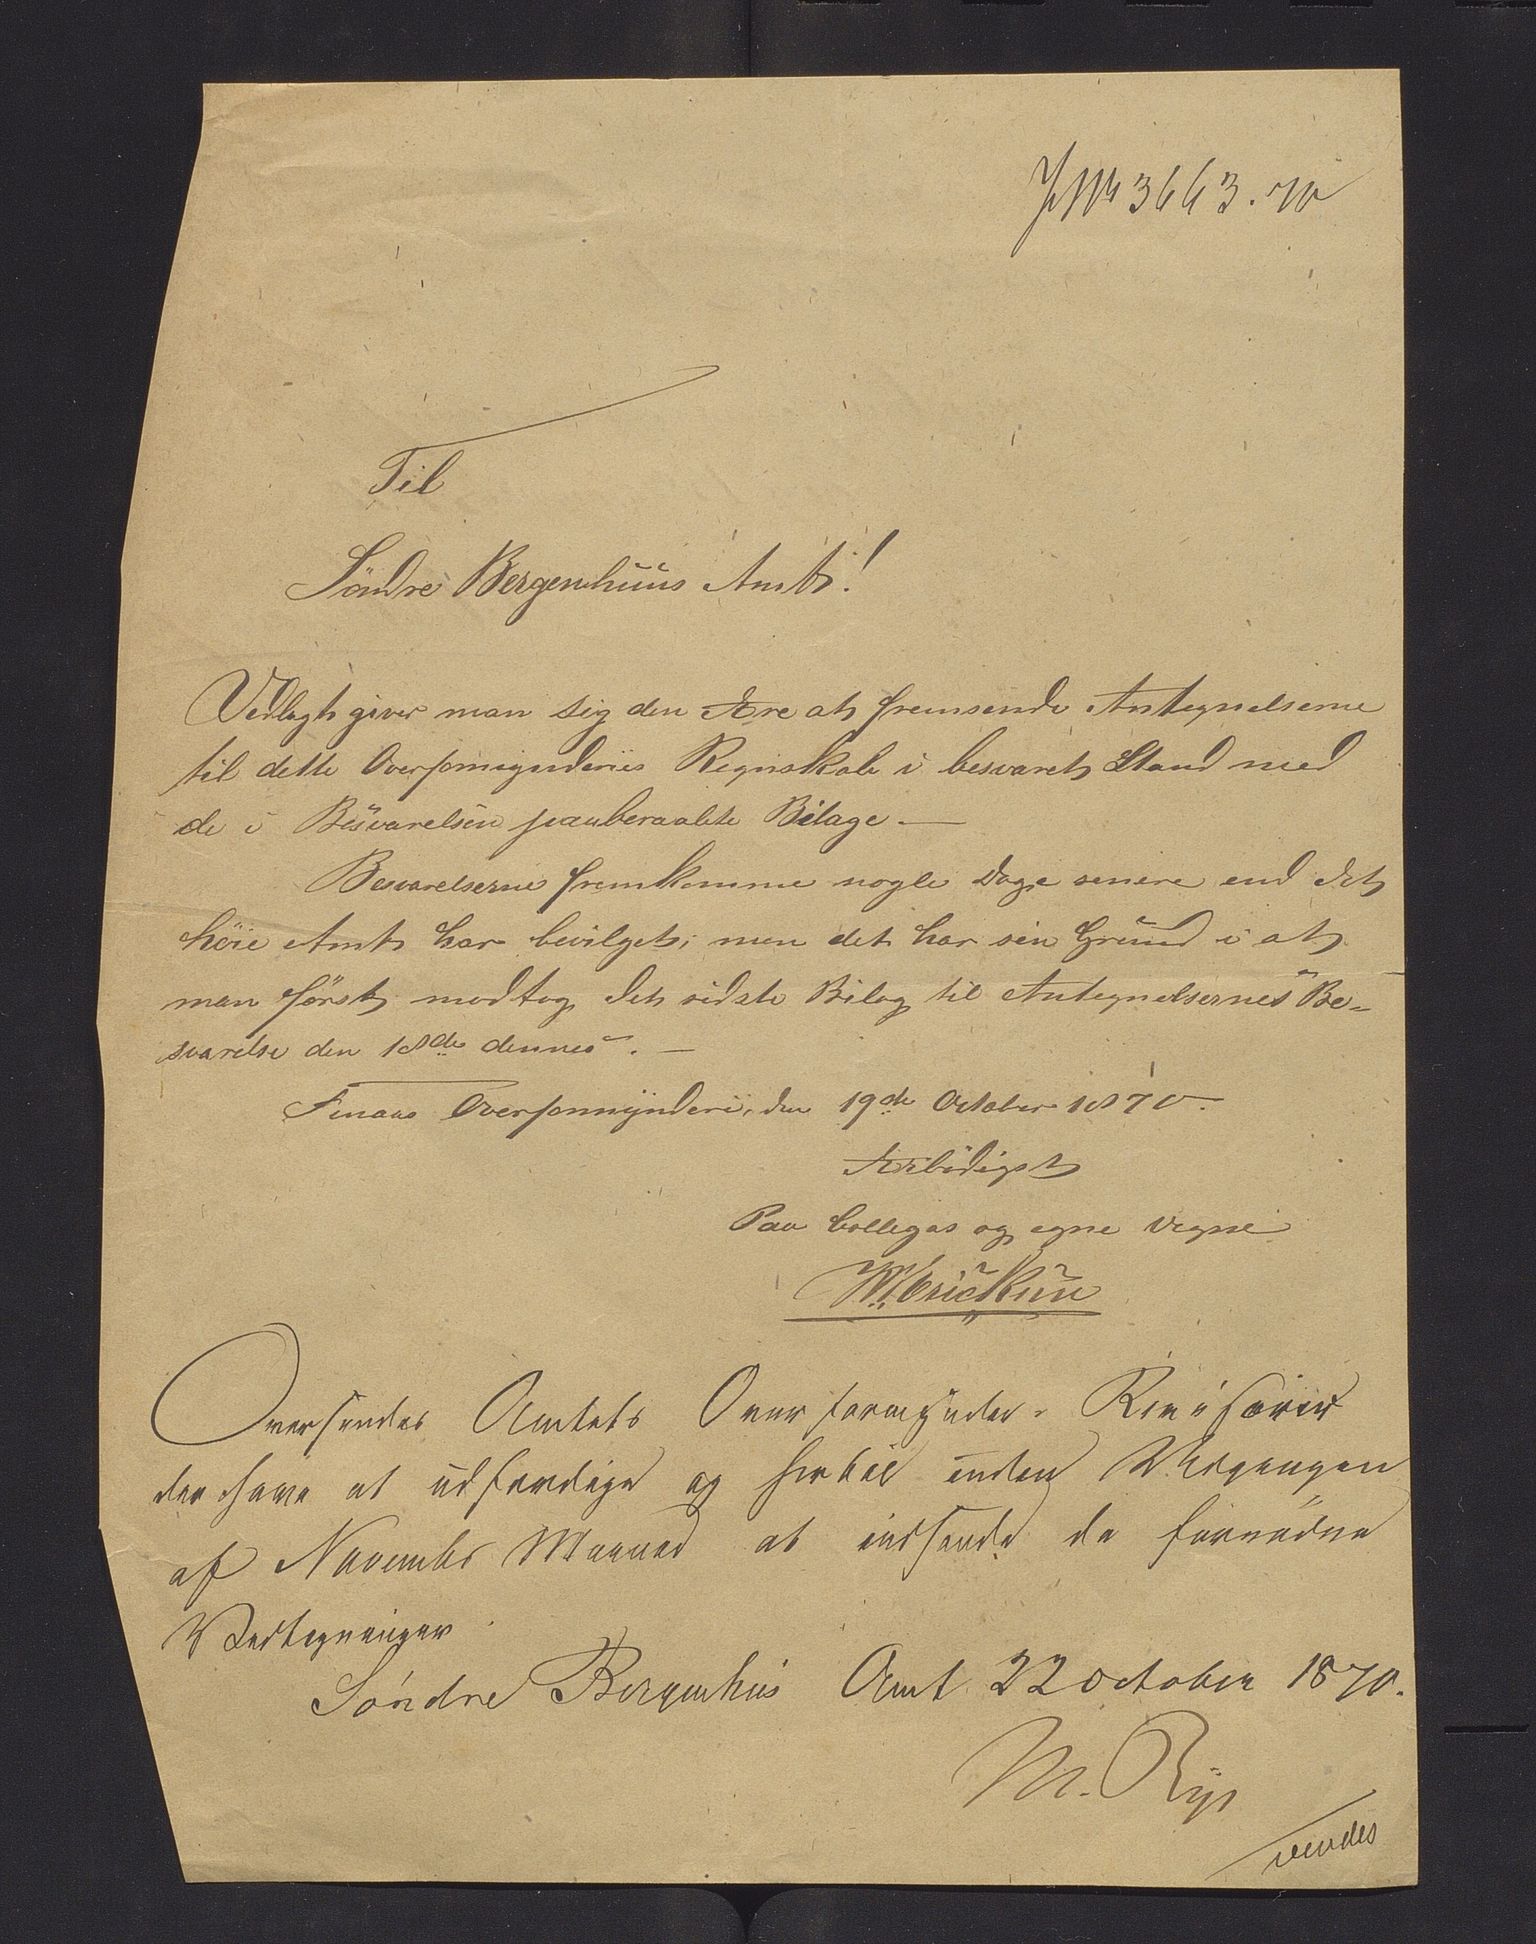 JNr 3663.70
Til
Søndre Bergenhuus Amt!
Vedlagt giver man sig den Ære at fremsende Antegnelserne
til dette Overformynderies Regnskab i besvaret Stand med
de i Besvarelsen paaberaabte Bilage. —
Besvarelserne fremkomme nogle Dage senere end det
höie Amt har bevilget; men det har sin Grund i at
man först modtog det sidste Bilag til Antegnelsernes Be-
svarelse den 18de dennes. —
Finaas Overformynderi, den 19de October 1870.
Ærbödigst
Paa Collegas og egne Vegne
Oversendes Amtets Overformynder-Revisorer
der have at udfærdige og hertil inden Udgangen
af November Maaned at indsende de fornødne
Vedtegninger.
Søndre Bergenhus Amt 22 October 1870.
vendes